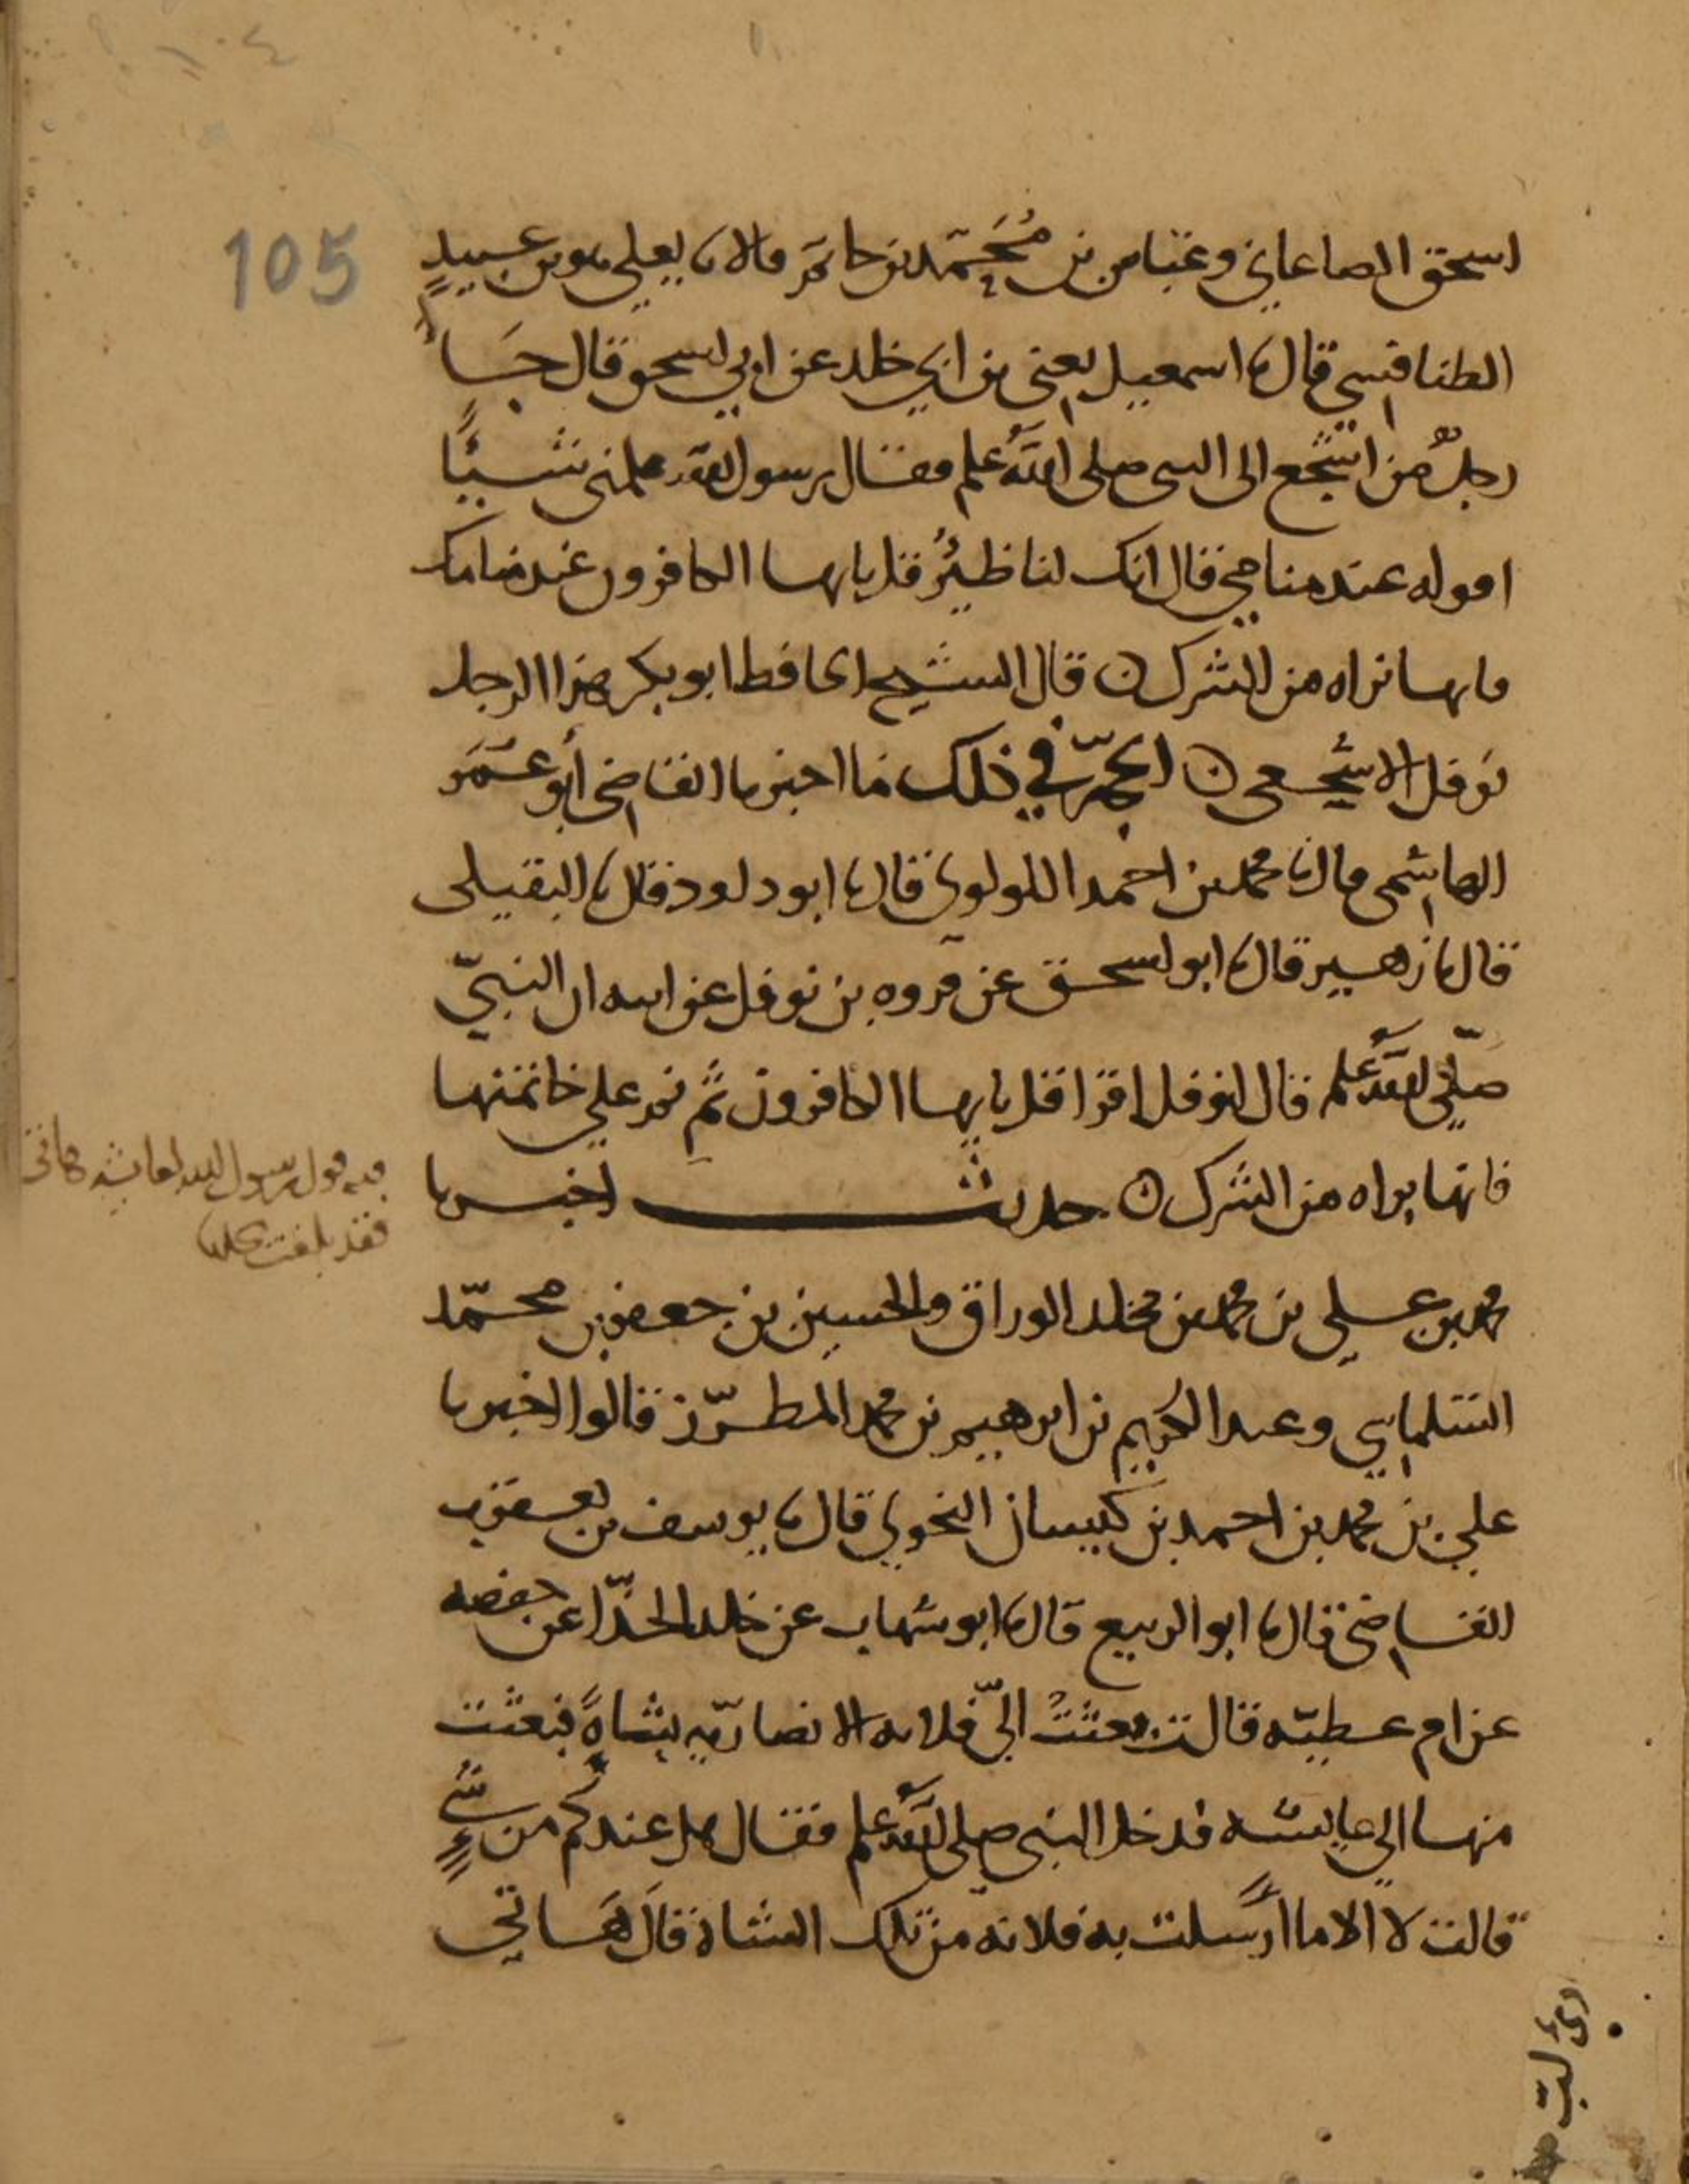 105
اسحق الصاغاني وعباس بن مُحَمَّد بن حاتم قالا نا يعلى هو بن عبيدٍ
الطنافسي قال نا اسمعيل يعني بن ابي خلد عن ابي اسحق قال جَاءَ
رجلٌ من اشجع الى النبي صلى الله علم فقال يرسول الله علمني شيئًا
اقوله عند منامي فقال انك لنا ظِئرٌ قل يايها الكافرون عند منامك
فانها براه من الشرك ن قال الشيخ الحافظ ابو بكر هذا الرجل
نوفل الاشجعي ن الحجّة في ذلك ما اخبرنا القاضي أبو عُمَر
الهاشمي قال نا محمد بن احمد اللولوي قال نا ابو داود قال نا النفيلي
قال نا زهير قال نا ابو اسحق عن فروه بن نوفل عن ابيه ان النبيّ
صلّى الله علم قال لنوفل اقرا قل يايها الكافرون ثم نم على خاتمتها
فانها براه من الشرك ن حديث اخبرنا
فيه قول رسول الله لعايشه هاتي
فقد بلغت محلها
محمد بن علي بن محمد بن مخلد الوراق والحسين بن جعفر بن محمّد
السلماسي وعبد الكريم بن ابرهيم بن محمد المطرّز قالوا اخبرنا
علي بن محمد بن احمد بن كيسان النحوي قال نا يوسف بن يعقوب
القاضي قال نا ابو الربيع قال نا ابو شهاب عن خلد الحذّا عن حفصه
عن ام عطيّه قالت بعثتْ اليّ فلانه الانصاريّه بشاةٍ فبعثت
منها الى عايشه فدخل النبي صلى الله علم فقال هل عندكم من شيءٍ
قالت لا الا ما ارسلت به فلانه من تلك الشاة قال هَاتي